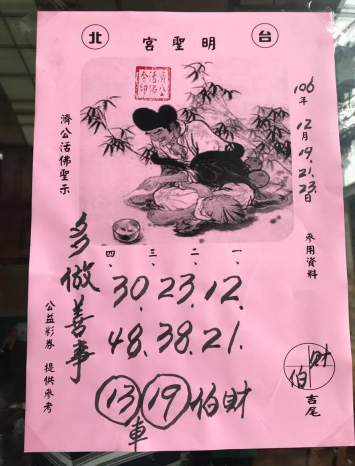 台北
明聖宮
濟公活佛
令印
106年12月19.21.23日
參用資料
濟公活佛聖示
一、12、21、
二、23、38、
三、30、48、
四、
多做善事
13 19 伯財
車
公益彩券 提供參考
財
伯
吉尾